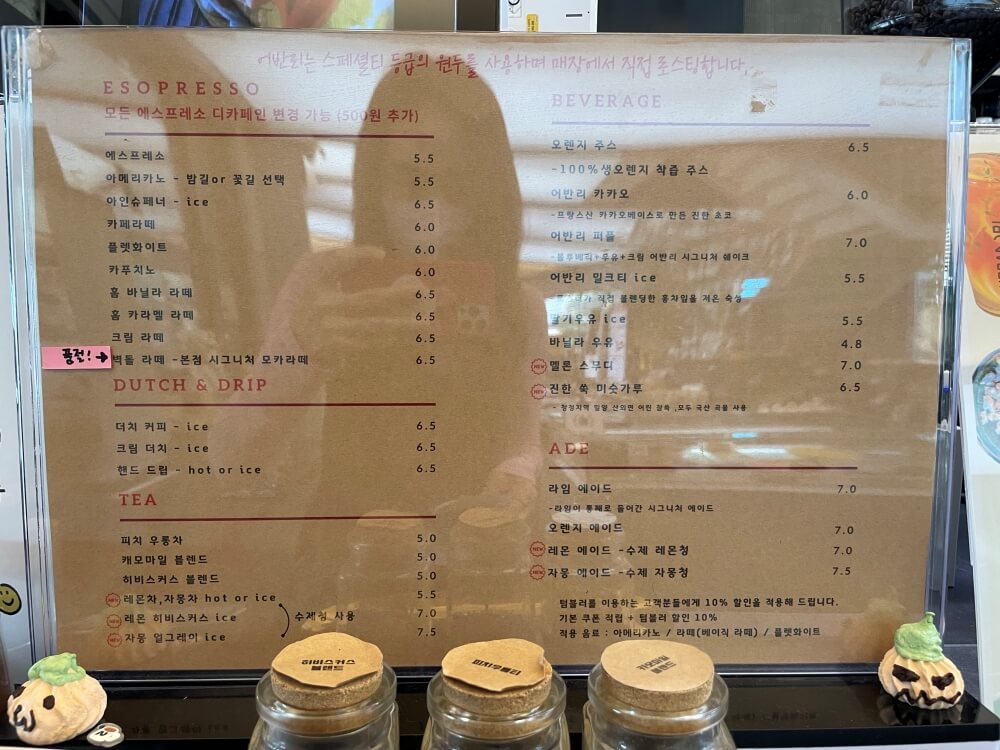 어반리는 스페셜티 등급의 원두를 사용하며 매장에서 직접 로스팅합니다.
ESOPRESSO
모든 에스프레소 디카페인 변경 가능 (500원 추가)
에스프레소 5.5
아메리카노 - 밤길or 꽃길 선택 5.5
아인슈페너 - ice 6.5
카페라떼 6.0
플렛화이트 6.0
카푸치노 6.0
홈 바닐라 라떼 6.5
홈 카라멜 라떼 6.5
크림 라떼 6.5
품절! → 벽돌 라떼 -본점 시그니처 모카라떼 6.5
DUTCH & DRIP
더치 커피 - ice 6.5
크림 더치 - ice 6.5
핸드 드립 - hot or ice 6.5
TEA
피치 우롱차 5.0
캐모마일 블렌드 5.0
히비스커스 블렌드 5.0
NEW 레몬차,자몽차 hot or ice 5.5
NEW 레몬 히비스커스 ice 7.0
NEW 자몽 얼그레이 ice 7.5
수제청 사용
BEVERAGE
오렌지 주스 6.5
-100%생오렌지 착즙 주스
어반리 카카오 6.0
-프랑스산 카카오베이스로 만든 진한 초코
어반리 퍼플 7.0
-블루베리+우유+크림 어반리 시그니처 쉐이크
어반리 밀크티 ice 5.5
직접 블렌딩한 홍차잎을 저온 숙성
딸기우유 ice 5.5
바닐라 우유 4.8
NEW 멜론 스무디 7.0
NEW 진한 쑥 미숫가루 6.5
- 청정지역 밀양 산외면 어린 참쑥 ,모두 국산 곡물 사용
ADE
라임 에이드 7.0
-라임이 통째로 들어간 시그니처 에이드
오렌지 에이드 7.0
NEW 레몬 에이드 -수제 레몬청 7.0
NEW 자몽 에이드 -수제 자몽청 7.5
텀블러를 이용하는 고객분들에게 10% 할인을 적용해 드립니다.
기본 쿠폰 적립 + 텀블러 할인 10%
적용 음료 : 아메리카노 / 라떼(베이직 라떼) / 플렛화이트
히비스커스
블렌드
피치우롱티
카모마일
블렌드